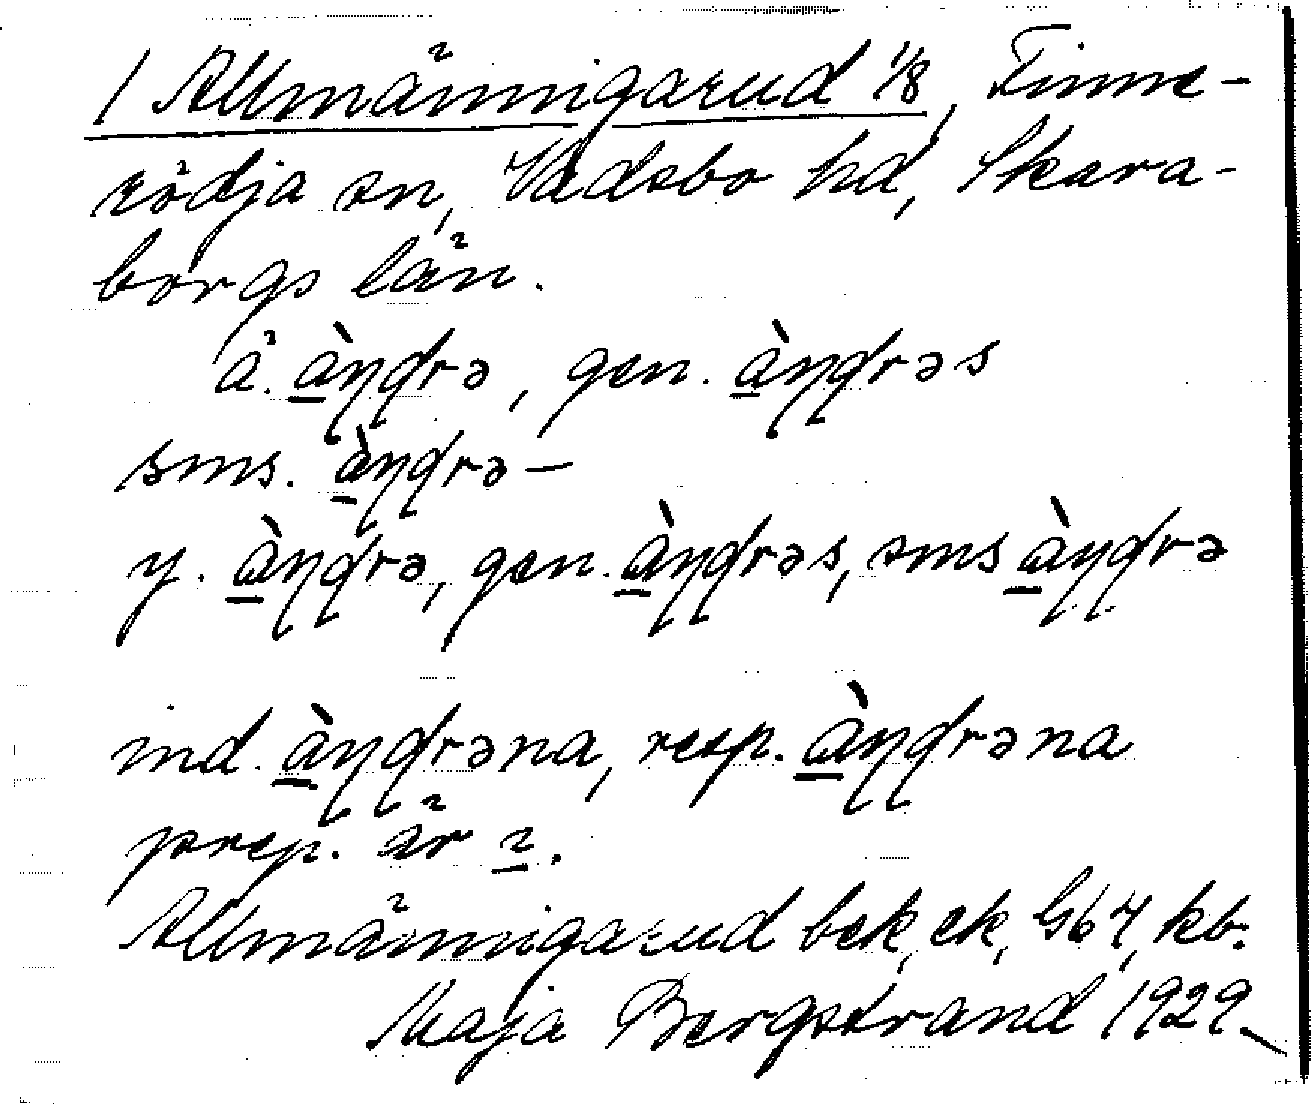 1 Allmänningarud 1/8, Finne-
rödja sn, Vadsbo hd, Skara-
borgs län.
ä. àṇḍrə, gen. àṇḍrəs
sms. àṇḍrə–
y. àṇḍrə, gen. àṇḍrəs, sms àṇḍrə
ind. àṇḍrəna, resp. àṇḍrəna
prep. är
Allmänningarud bek, ek, G67, kb.
Maja Bergstrand 1929.